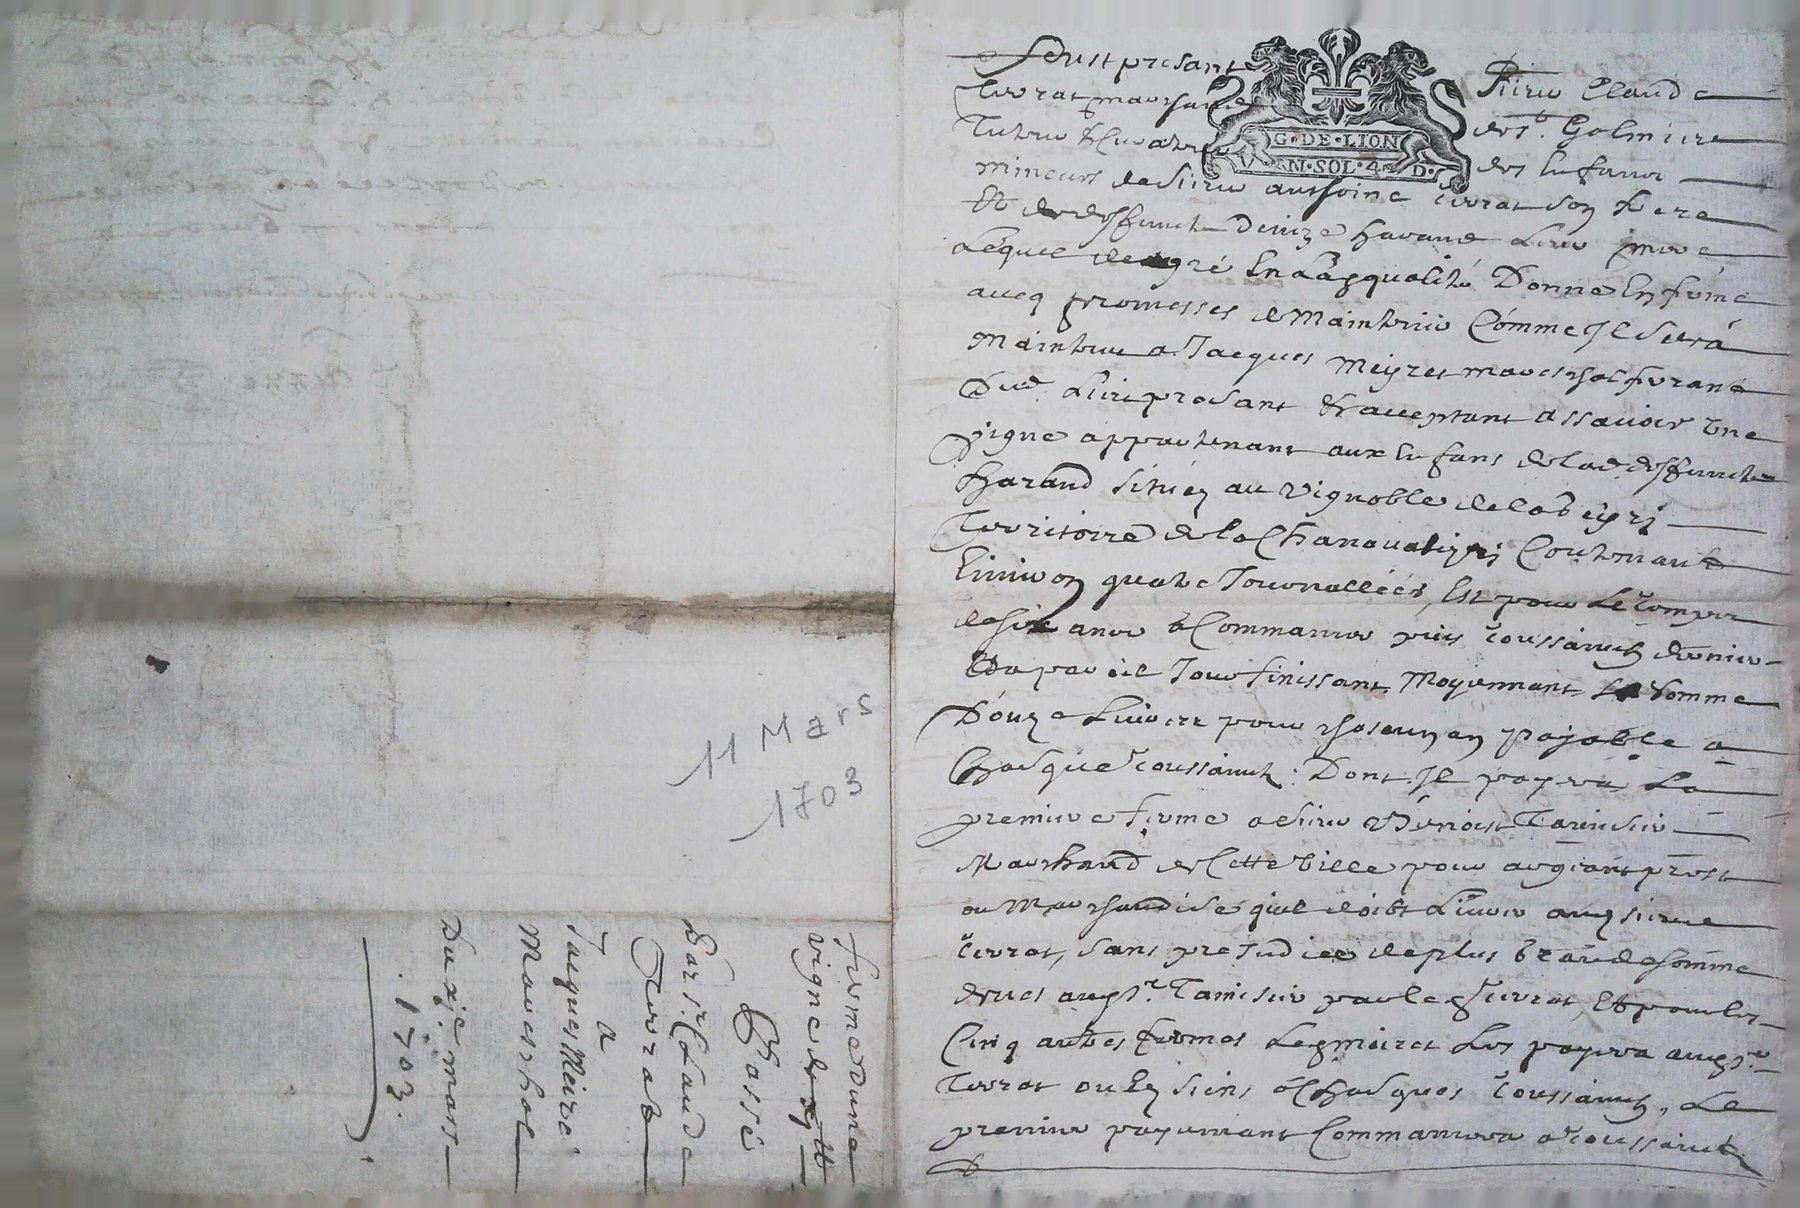 Feust presant Sieur Claude
Terrat marchand de St. Galmier
Tuteur & Curateur des Enfans
mineurs de Sieur anthoine Terrat son frere
Et de deffuncte Denize harand Leur mere
Lequel de gré En Lad. qualité Donne En ferme
avecq promesses de Maintenir Comme Il Sera
Maintenu a Jacques Meyret mareschal ferrant
dud. Lieu presant & acceptant assavoir Une
vigne appartenant aux Enfans de lad. deffuncte
harand Situéz au Vignoble de la
Territoire de la Contenant
Environ quatre Journallées, Est pour Le Temps
de six anns a Commancer puis Toussainctz dernier
Et a pareil Jour finissant Moyennant La Somme
Douze Livres pour chascun an payable a
Chasque Toussainctz. Dont Il payera La
premiere ferme a Sieur Benoist Tamisier
Marchand de Cette Ville pour argeant prest
ou Marchandise quil doibt Livrer aud. sieur
Terrat, sans prejudice de plus grande somme
deues aud. Sr. Tamisier par led. Terrat, Et pour les
Cinq autres fermes Led. meiret Les payera aud. Sr.
Terrat ou Es siens a Chasques Toussainctz, Le
premier payemant Commancera a Toussainctz
11 Mars
1703
ferme d'une
vigne
Passé
Par Sr. Claude
Terrat
a
Jacques Meire
Mareschal
Du xje. mars
.1703.